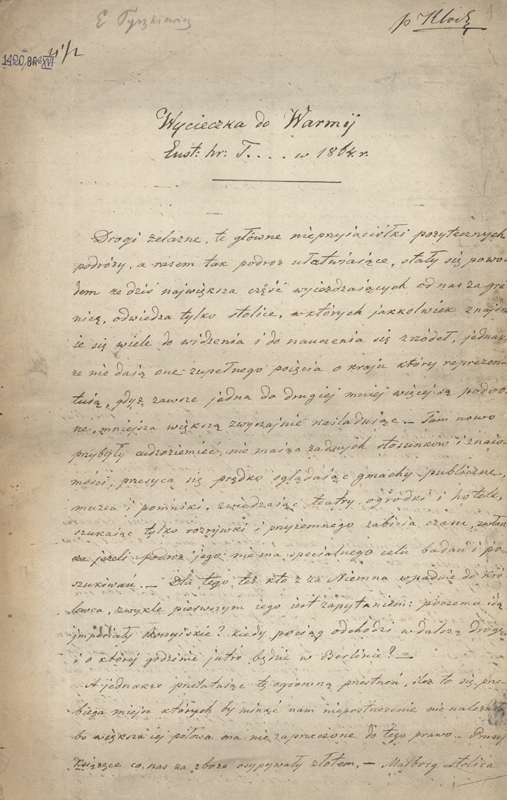 E Tyszkiewicz
p Kłock
1420
XVI
Wycieczka do Warmij
Eust: hr: T.... w 1864 r.
Drogi żelazne, te główne nieprzyjaciółki pożytecznych
podróży, a razem tak podróż ułatwiające, stały się powo-
dem że dziś największa część wyjeżdżających od nas za gra-
nicę, odwiedza tylko stolice, w których jakkolwiek znajdu-
ie się wiele do widzenia i do nauczenia się źródeł, jednak
że nie dają one zupełnego pojęcia o kraju który reprezen-
tują, gdyż zawsze jedna do drugiej mniej więcej są podob-
ne, mniejsza większą zwyczajnie naśladując. — Tam nowo
przybyły cudzoziemiec, nie mając żadnych stosunków i znajo-
mości, przesyca się prędko oglądając gmachy publiczne,
muzea i pomniki, zwiedzając teatry, ogródki i hotele,
szukając tylko rozrywki i przyjemnego zabicia czasu,
jeżeli podróż jego nie ma specialnego celu badań i po-
szukiwań. — Dla tego też kto z za Niemna wpadnie do Kró-
lewca, zwykle pierwszym jego jest zapytaniem: poczemu idą
imperiały Rossyjskie? kiedy pociąg odchodzi w dalszą drogę
i o której godzinie jutro będzie w Berlinie? —
A jednakże przelatując tę ogromną przestrzeń, ileż to się prze-
biega miejsc których by minąć nam niepostrzeżenie nie należało
bo większa jej połowa ma nie zaprzeczone do tego prawo. — Prusy
Książęce co nas za zboże osypywały złotem. — Malborg stolica